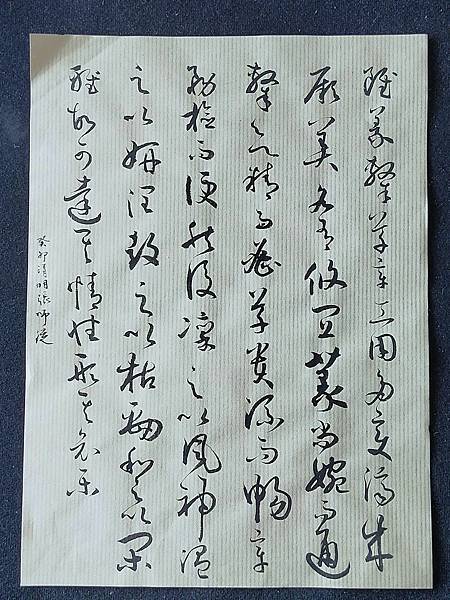 雖篆隸草章工用多變濟成
厥美各有攸宜篆尚婉而通
隸欲精而密草貴流而暢章
務檢而便然後凜之以風神溫
之以妍潤鼓之以枯勁和之以閑
雅故可達其情性形其哀樂
癸卯清明張師從